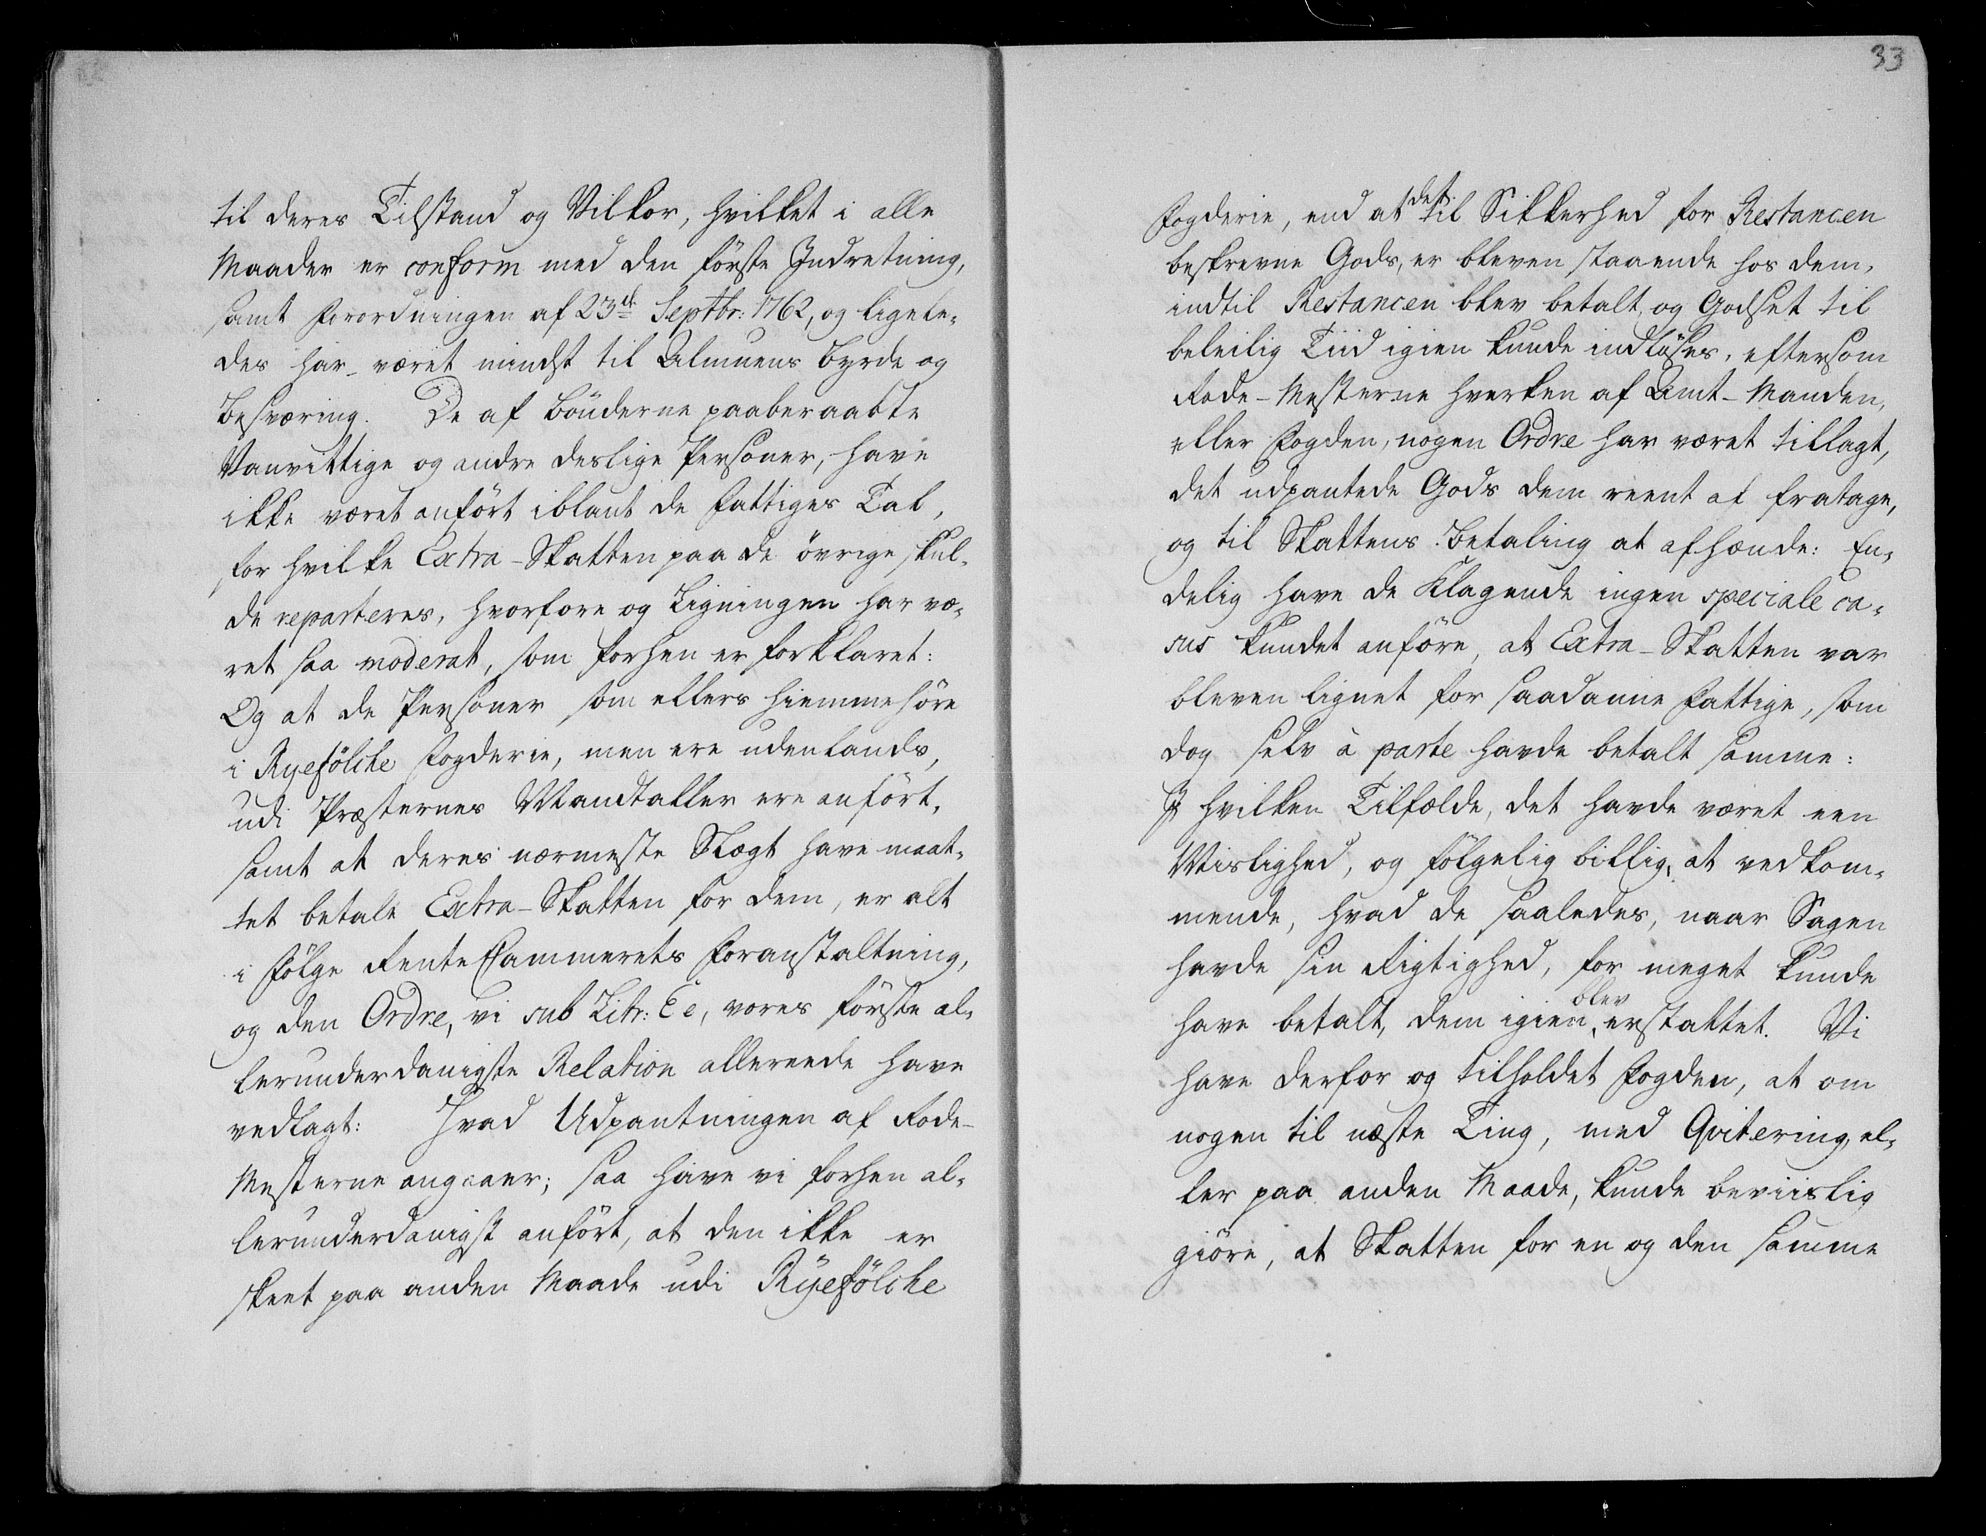 til deres Tilstand og Vilkor, hvilket i alle
Maader er conform med den förste Indretning,
samt Forordningen af 23de Septbr: 1762, og ligele-
des har været mindst til Almuens Byrde og
Besværing. De af Bönderne paaberaabte
Vanvittige og andre deslige Personer, have
ikke været anfört iblant de Fattiges Tal,
for hvilke Extra-Skatten paa de övrige skul-
de reparteres, hvorfore og Ligningen har væ-
ret saa moderat, som forhen er forklaret:
Og at de Personer som ellers hiemmehöre
i Ryefölche Fogderie, men ere udenlands,
udi Præsternes Mandtaller ere anfört,
samt at deres nærmeste Slægt have maat-
tet betale Extra-Skatten for dem, er alt
i Fölge RenteCammerets Foranstaltning,
og den Ordre, vi sub Litr: Ee, vores förste al-
lerunderdanigste Relation allereede have
vedlagt: Hvad Udpantningen af Rode-
Mesterne angaaer; saa have vi forhen al-
lerunderdanigst anfört, at den ikke er
skeet paa anden Maade udi Ryefölche
33
Fogderie, end at det til Sikkerhed for Restancen
beskrevne Gods, er bleven staaende hos dem,
indtil Restancen blev betalt, og Godset til
beleilig Tiid igien kunde indlöses, eftersom
Rode-Mesterne hverken af Amt-Manden,
eller Fogden, nogen Ordre har været tillagt,
det udpantede Gods dem reent af fratage,
og til Skattens Betaling at afhænde: En-
delig have de Klagende ingen speciale ca-
sus kundet anföre, at Extra-Skatten var
bleven lignet for saadanne Fattige, som
dog selv à parte havde betalt samme:
I hvilken Tilfælde, det havde været een
Vrislighed, og fölgelig billig, at vedkom-
mende, hvad de saaledes, naar Sagen
havde sin Rigtighed, for meget kunde
have betalt, dem igien blev erstattet. Vi
have derfor og tilholdet Fogden, at om
nogen til næste Ting, med Qvitering, el-
ler paa anden Maade, kunde beviislig
giöre, at Skatten for en og den samme